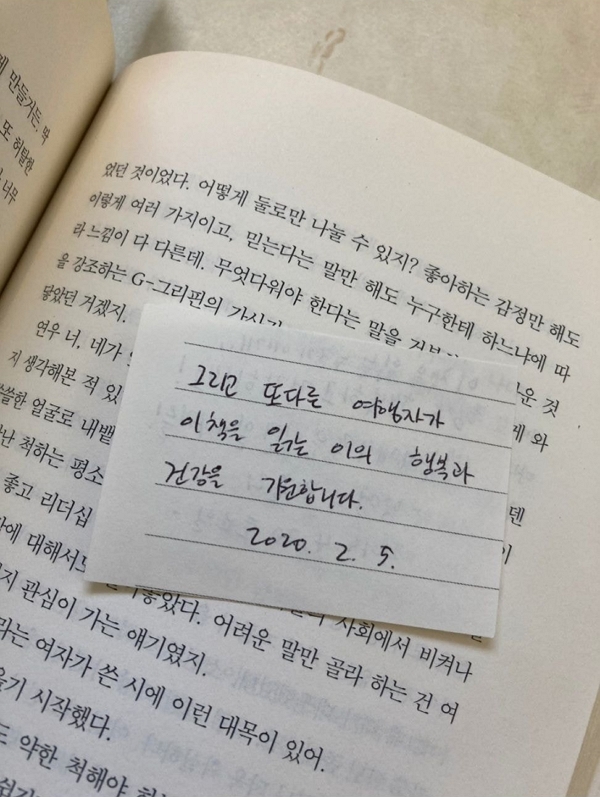 게 만들거든. 딱
또 허탈한
너무
었던 것이었다. 어떻게 둘로만 나눌 수 있지? 좋아하는 감정만 해도
이렇게 여러 가지이고, 믿는다는 말만 해도 누구한테 하느냐에 따
라 느낌이 다 다른데. 무엇다워야 한다는 말을
운 것
을 강조하는 G-그리핀의 가시가
게 와
닿았던 거겠지.
연우 너, 네가
지 생각해본 적 있
쓸한 얼굴로 내뱉
난 척하는 평소
덴
좋고 리더십
이
에 대해서도
좋았다.
사회에서 비켜나
지 관심이 가는 얘기였지.
어려운 말만 골라 하는 건 여
라는 여자가 쓴 시에 이런 대목이 있어.
기 시작했다.
도 약한 척해야
그리고 또다른 여행자가
이 책을 읽는 이의 행복과
건강을 기원합니다.
2020. 2. 5.